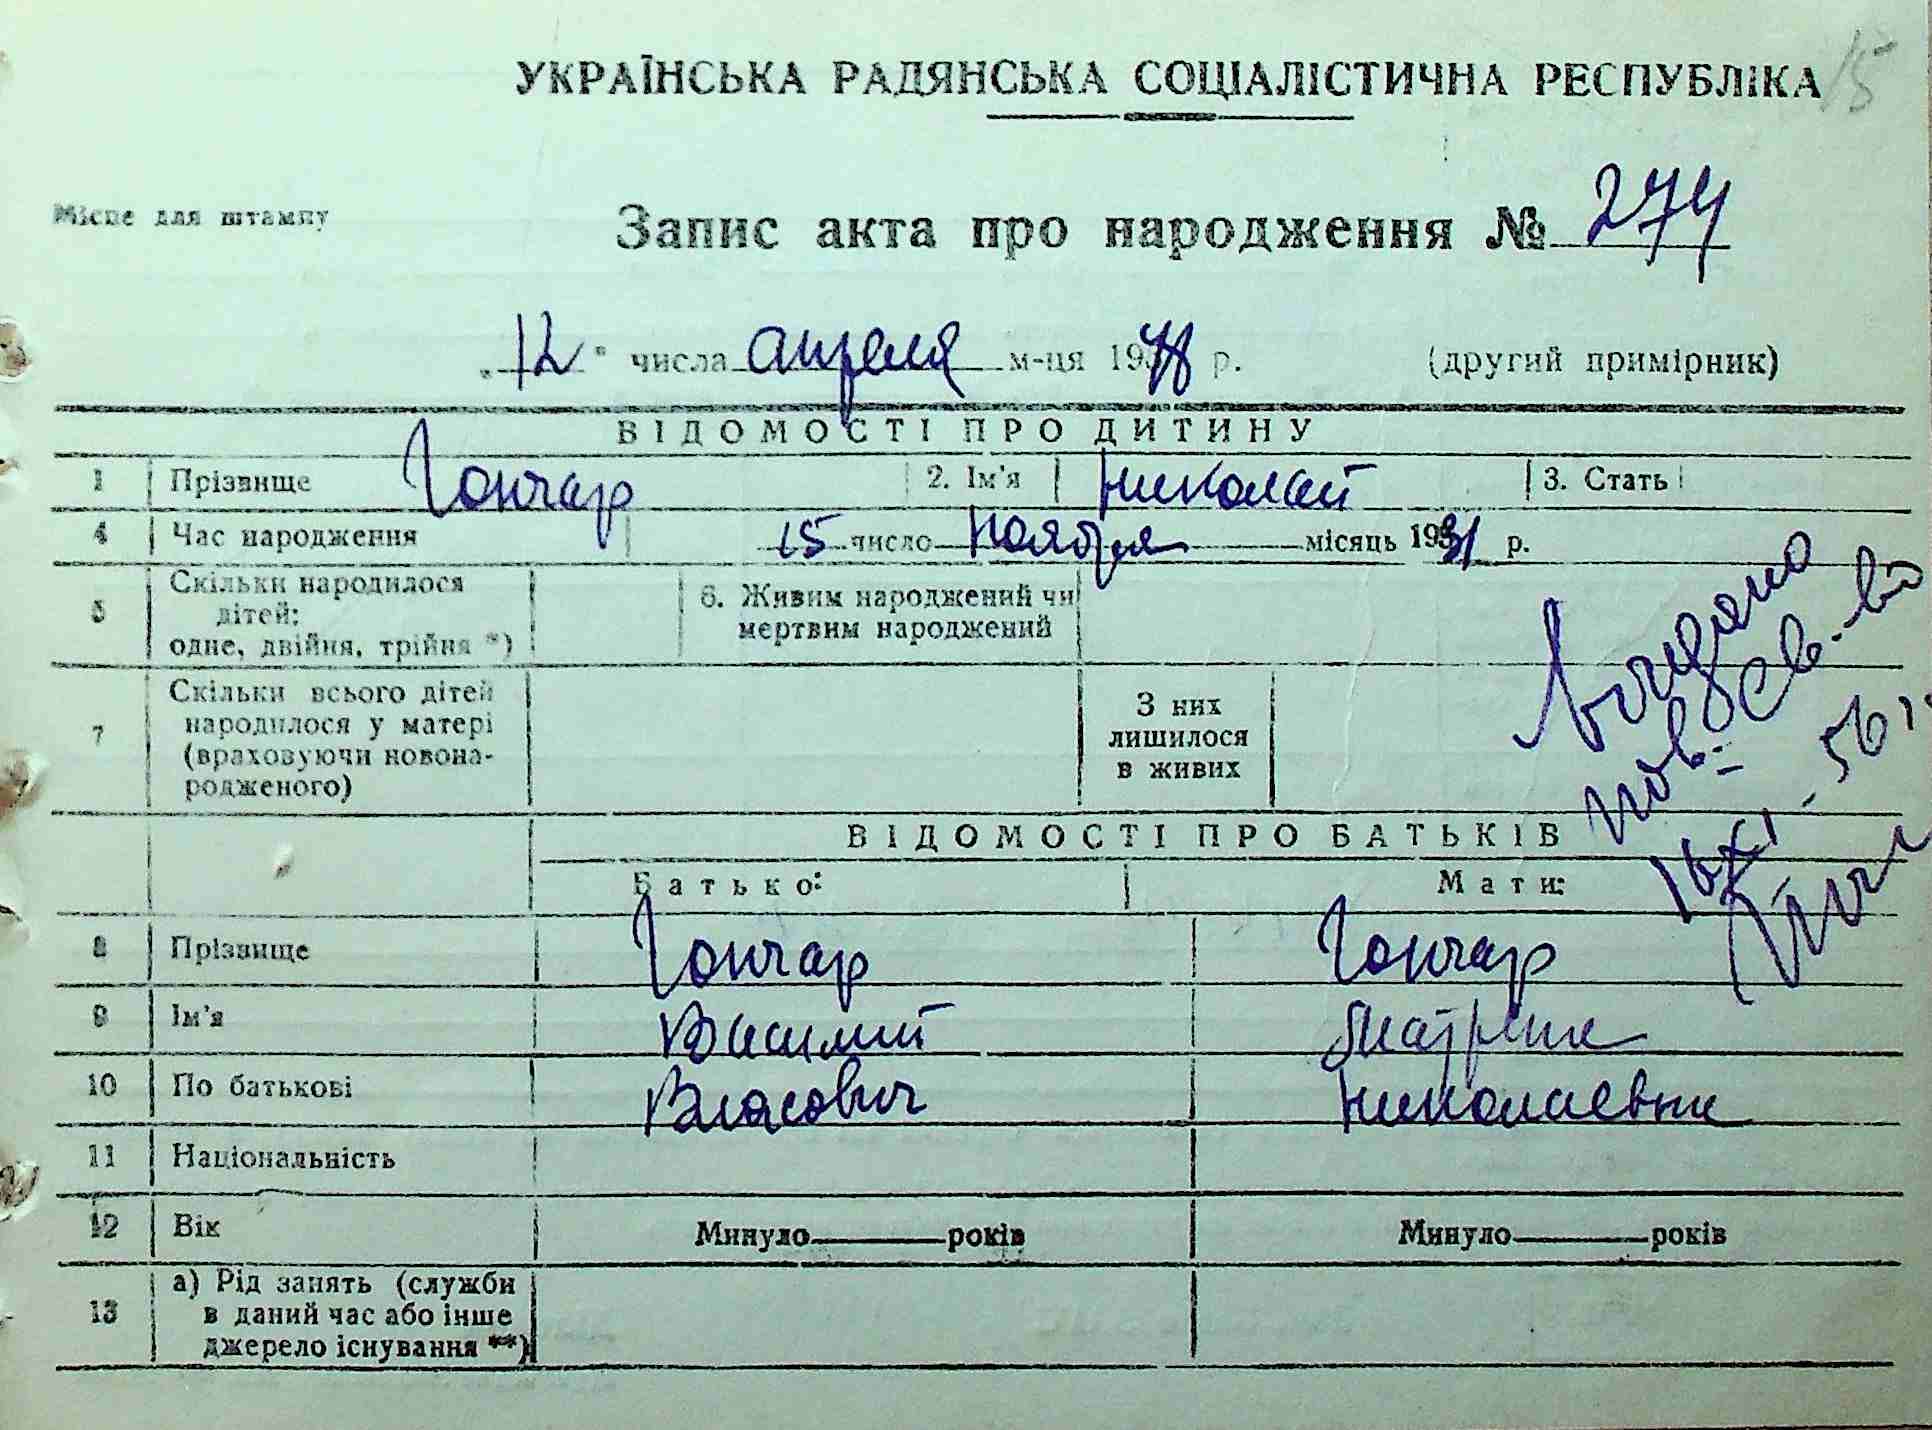 15
УКРАЇНСЬКА РАДЯНСЬКА СОЦІАЛІСТИЧНА РЕСПУБЛІКА
Місце для штампу
Запис акта про народження № 274
„12" числа апреля м-ця 1948 р. (другий примірник)
ВІДОМОСТІ ПРО ДИТИНУ
1 Прізвище Гончар 2. Ім'я Николай 3. Стать
4 Час народження 15 число ноября місяць 1931 р.
5 Скільки народилося дітей: одне, двійня, трійня *) 6. Живим народжений чи мертвим народжений
7 Скільки всього дітей народилося у матері (враховуючи новонародженого) З них лишилося в живих
Выдано
пов. св-во
16 XI-56 г.
ВІДОМОСТІ ПРО БАТЬКІВ
Батько: Мати:
8 Прізвище Гончар Гончар
9 Ім'я Василий Матрена
10 По батькові Власович Николаевна
11 Національність
12 Вік Минуло років Минуло років
13 а) Рід занять (служби в даний час або інше джерело існування **)